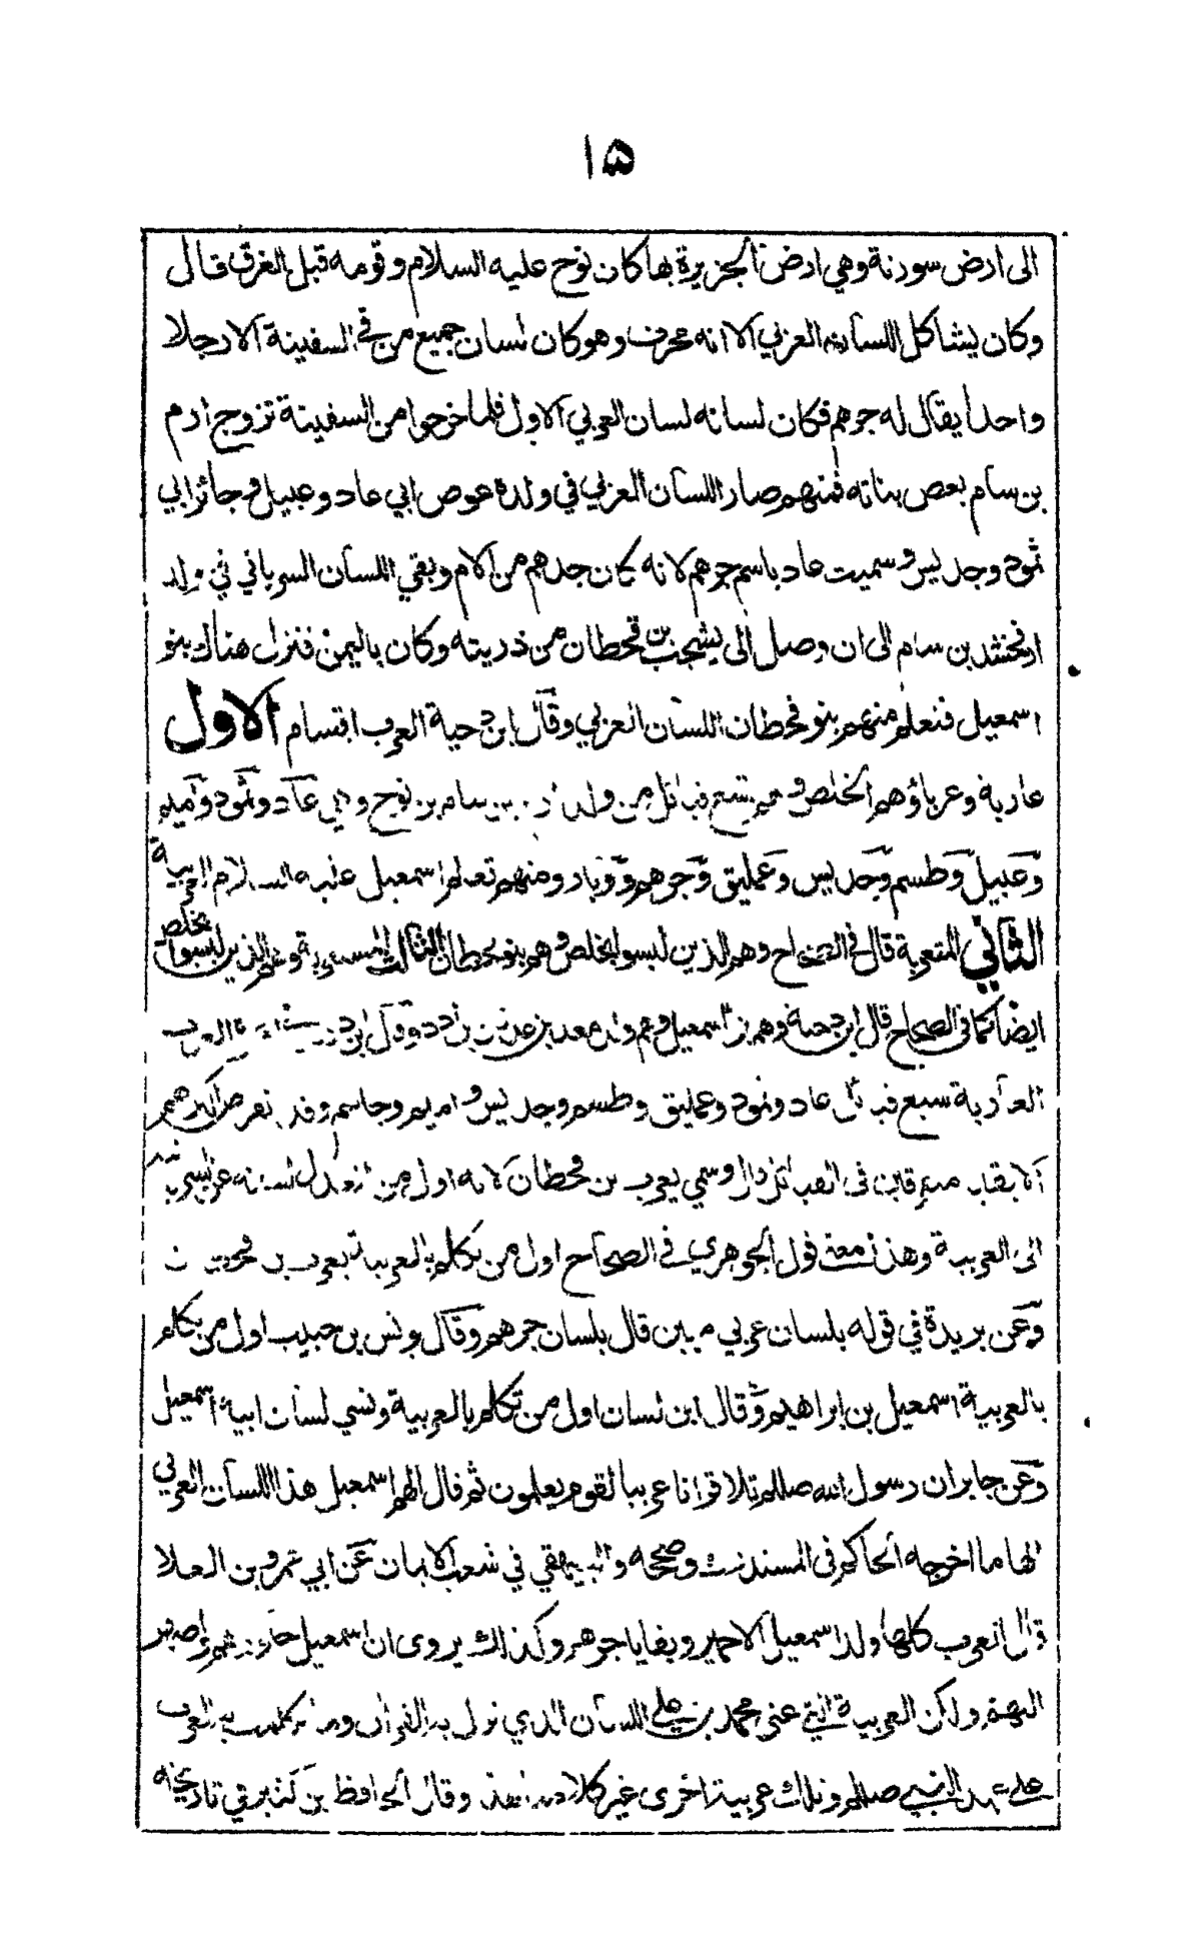 ١٥
الى ارض سورنة وهي ارض الجزيرة بها كان نوح عليه السلام وقومه قبل الغرق قال
وكان يشاكل اللسان العربي الا انه محرف وهو كان لسان جميع من في السفينة الا رجلا
واحدا يقال له جرهم فكان لسانه لسان العربي الاول فلما خرجوا من السفينة تزوج ارم
بن سام بعض بناته فمنهم صار اللسان العربي في ولده عوص ابي عاد وعبيل وجاثر ابي
ثمود وجديس وسميت عاد باسم جرهم لانه كان جدهم من الام وبقي اللسان السرياني في ولد
ارفخشد بن سام الى ان وصل الى يشجب بن قحطان من ذريته وكان باليمن فنزل هناك بنو
اسمعيل فتعلم منهم بنو قحطان اللسان العربي وقال ابن دحية العرب اقسام الاول
عاربة وعرباؤهم الخلص وهم تسع قبائل من ولد ارم بن سام بن نوح وهي عاد وثمود واميم
وعبيل وطسم وجديس وعمليق وجرهم ووبار ومنهم تعلم اسمعيل عليه السلام العربية
الثاني المتعربة قال في الصحاح وهم الذين ليسوا بخلص وهم بنو قحطان الثالث المستعربة وهم الذين ليسوا بخلص
ايضا كما في الصحاح قال ابن دحية وهم بنو اسمعيل وهم ولد معد بن عدنان بن ادد وقال ابن دريد العرب
العاربة سبع قبائل عاد وثمود وعمليق وطسم وجديس واميم وجاسم وقد انقرض اكثرهم
الا بقايا متفرقين في القبائل قال وسمي يعرب بن قحطان لانه اول من انعدل لسانه عن السريانية
الى العربية وهذا معنى قول الجوهري في الصحاح اول من تكلم بالعربية يعرب بن قحطان
وعن بريدة في قوله بلسان عربي مبين قال بلسان جرهم وقال يونس بن حبيب اول من تكلم
بالعربية اسمعيل بن ابراهيم وقال ابن لسان اول من تكلم بالعربية ونسي لسان ابيه اسمعيل
وعن جابر ان رسول الله صللم تلا قرانا عربيا لقوم يعلمون ثم قال الهم اسمعيل هذا اللسان العربي
الهاما اخرجه الحاكم في المستدرك وصححه والبيهقي في شعب الايمان عن ابي عمرو بن العلا
قال العرب كلها ولد اسمعيل الا حمير وبقايا جرهم وكذلك يروى ان اسمعيل جاورهم واصهر
اليهم ولكن العربية التي عنى محمد بن علي اللسان الذي نزل به القران وما تكلمت به العرب
على عهد النبي صللم وتلك عربية اخرى غير كلامنا هذا وقال الحافظ بن كثير في تاريخه